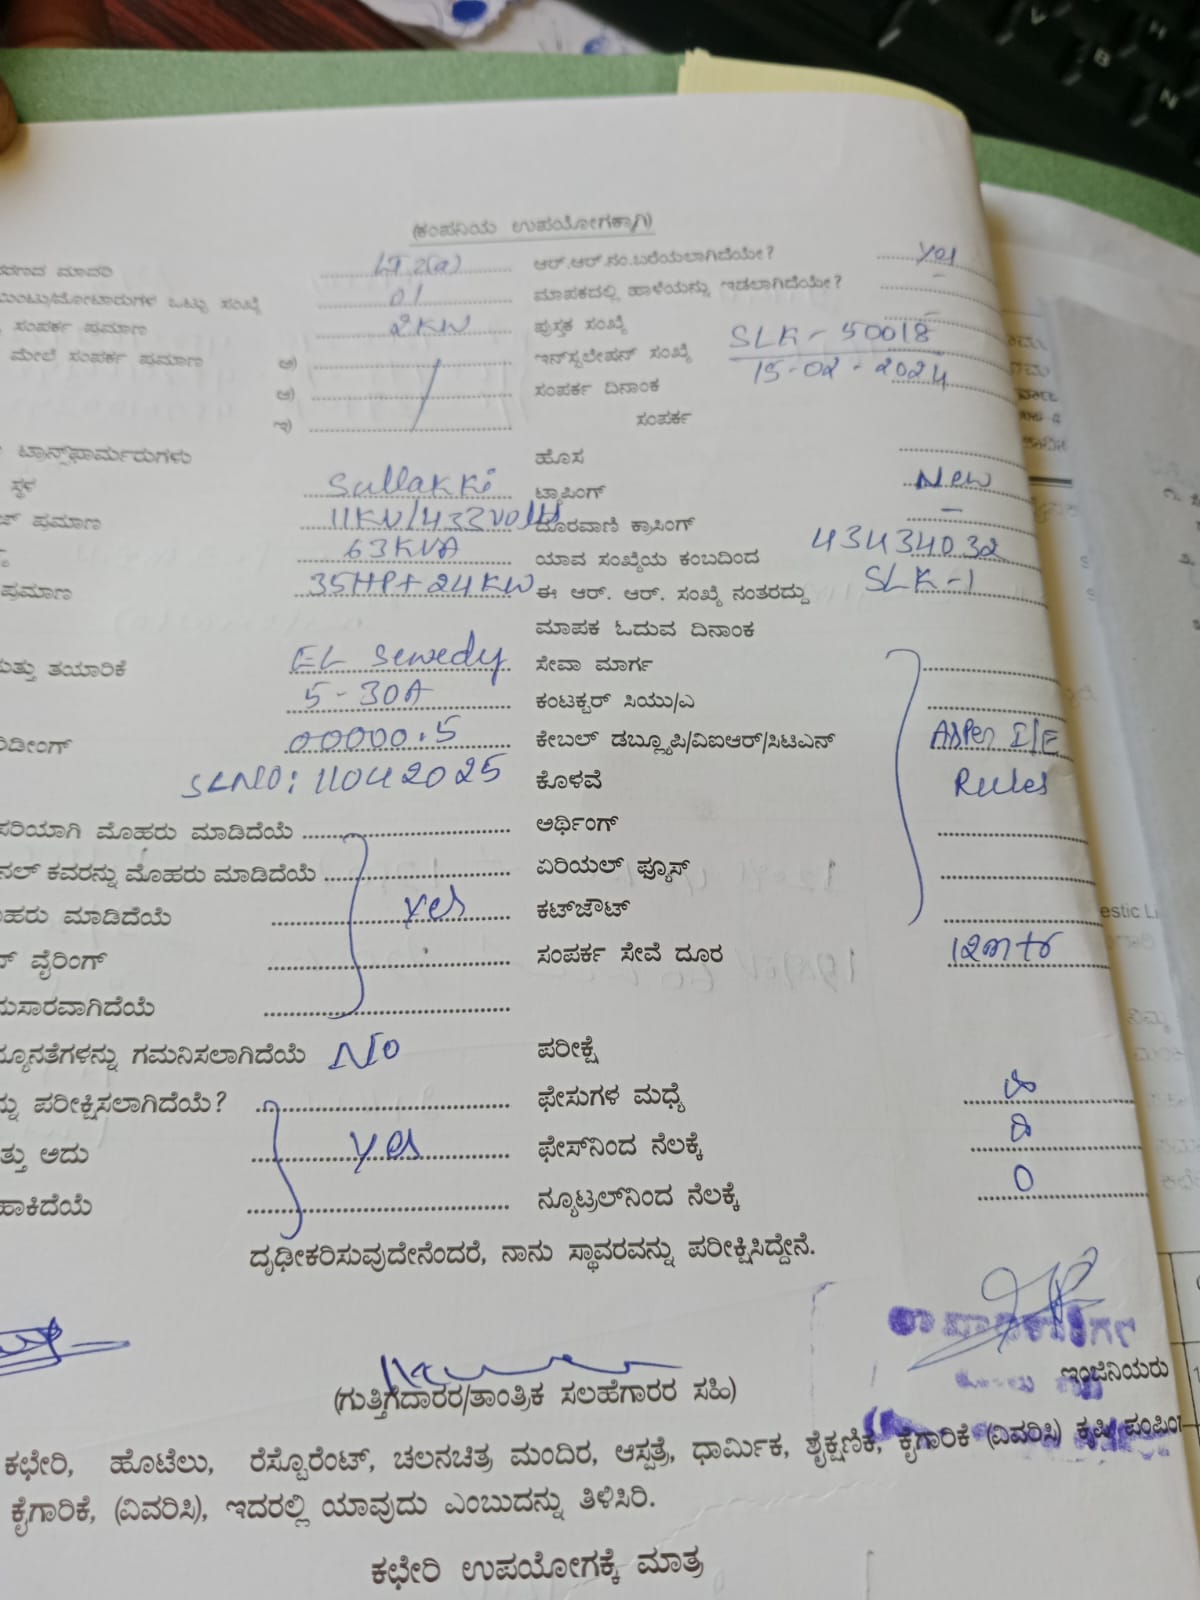 (ಕಂಪನಿಯ ಉಪಯೋಗಕ್ಕಾಗಿ)
ಮಾದರಿ LT 2(a) ಆರ್.ಆರ್.ನಂ.ಬರೆಯಲಾಗಿದೆಯೇ? Yes
ಒಟ್ಟು ಸಂಖ್ಯೆ 01 ಮಾಪಕದಲ್ಲಿ ಹಾಳೆಯನ್ನು ಇಡಲಾಗಿದೆಯೇ? -
ಸಂಪರ್ಕ ಪ್ರಮಾಣ 2KW ಪುಸ್ತಕ ಸಂಖ್ಯೆ -
ಮೇಲೆ ಸಂಪರ್ಕ ಪ್ರಮಾಣ ಅ) ಇನ್‌ಸ್ಟಲೇಷನ್ ಸಂಖ್ಯೆ SLK-50018
ಆ) ಸಂಪರ್ಕ ದಿನಾಂಕ 15-02-2024
ಇ) ಸಂಪರ್ಕ
ಟ್ರಾನ್ಸ್‌ಫಾರ್ಮರುಗಳು ಹೊಸ
ಸ್ಥಳ Sullakki ಟ್ಯಾಪಿಂಗ್ New
ಪ್ರಮಾಣ 11KV/433volts ದೂರವಾಣಿ ಕ್ರಾಸಿಂಗ್ -
63KVA ಯಾವ ಸಂಖ್ಯೆಯ ಕಂಬದಿಂದ 43434032
ಪ್ರಮಾಣ 35HP+24KW ಈ ಆರ್. ಆರ್. ಸಂಖ್ಯೆ ನಂತರದ್ದು SLK-1
ಮಾಪಕ ಓದುವ ದಿನಾಂಕ
ತಯಾರಿಕೆ EL Sewedy ಸೇವಾ ಮಾರ್ಗ
5-30A ಕಂಟಕ್ಟರ್ ಸಿಯು/ಎ
00000.5 ಕೇಬಲ್ ಡಬ್ಲ್ಯೂಪಿ/ವಿಐಆರ್/ಸಿಟಿಎನ್ AsPer I/E
SLNO: 11042025 ಕೊಳವೆ Rules
ಸರಿಯಾಗಿ ಮೊಹರು ಮಾಡಿದೆಯೆ ಅರ್ಥಿಂಗ್
ಕವರನ್ನು ಮೊಹರು ಮಾಡಿದೆಯೆ ಏರಿಯಲ್ ಫ್ಯೂಸ್
ಮಾಡಿದೆಯೆ Yes ಕಟ್‌ಔಟ್
ವೈರಿಂಗ್ ಸಂಪರ್ಕ ಸೇವೆ ದೂರ 12mtr
ಗಮನಿಸಲಾಗಿದೆಯೆ NO ಪರೀಕ್ಷೆ
ಪರೀಕ್ಷಿಸಲಾಗಿದೆಯೆ? ಫೇಸುಗಳ ಮಧ್ಯೆ
ಅದು Yes ಫೇಸ್‌ನಿಂದ ನೆಲಕ್ಕೆ
ನ್ಯೂಟ್ರಲ್‌ನಿಂದ ನೆಲಕ್ಕೆ 0
ದೃಢೀಕರಿಸುವುದೇನೆಂದರೆ, ನಾನು ಸ್ಥಾವರವನ್ನು ಪರೀಕ್ಷಿಸಿದ್ದೇನೆ.
ಇಂಜಿನಿಯರು
(ಗುತ್ತಿಗೆದಾರರ/ತಾಂತ್ರಿಕ ಸಲಹೆಗಾರರ ಸಹಿ)
ಕಛೇರಿ, ಹೊಟೆಲು, ರೆಸ್ಟೊರೆಂಟ್, ಚಲನಚಿತ್ರ ಮಂದಿರ, ಆಸ್ಪತ್ರೆ, ಧಾರ್ಮಿಕ, ಶೈಕ್ಷಣಿಕ, ಕೈಗಾರಿಕೆ (ವಿವರಿಸಿ) ಕೃಷಿ
ಕೈಗಾರಿಕೆ, (ವಿವರಿಸಿ), ಇದರಲ್ಲಿ ಯಾವುದು ಎಂಬುದನ್ನು ತಿಳಿಸಿರಿ.
ಕಛೇರಿ ಉಪಯೋಗಕ್ಕೆ ಮಾತ್ರ